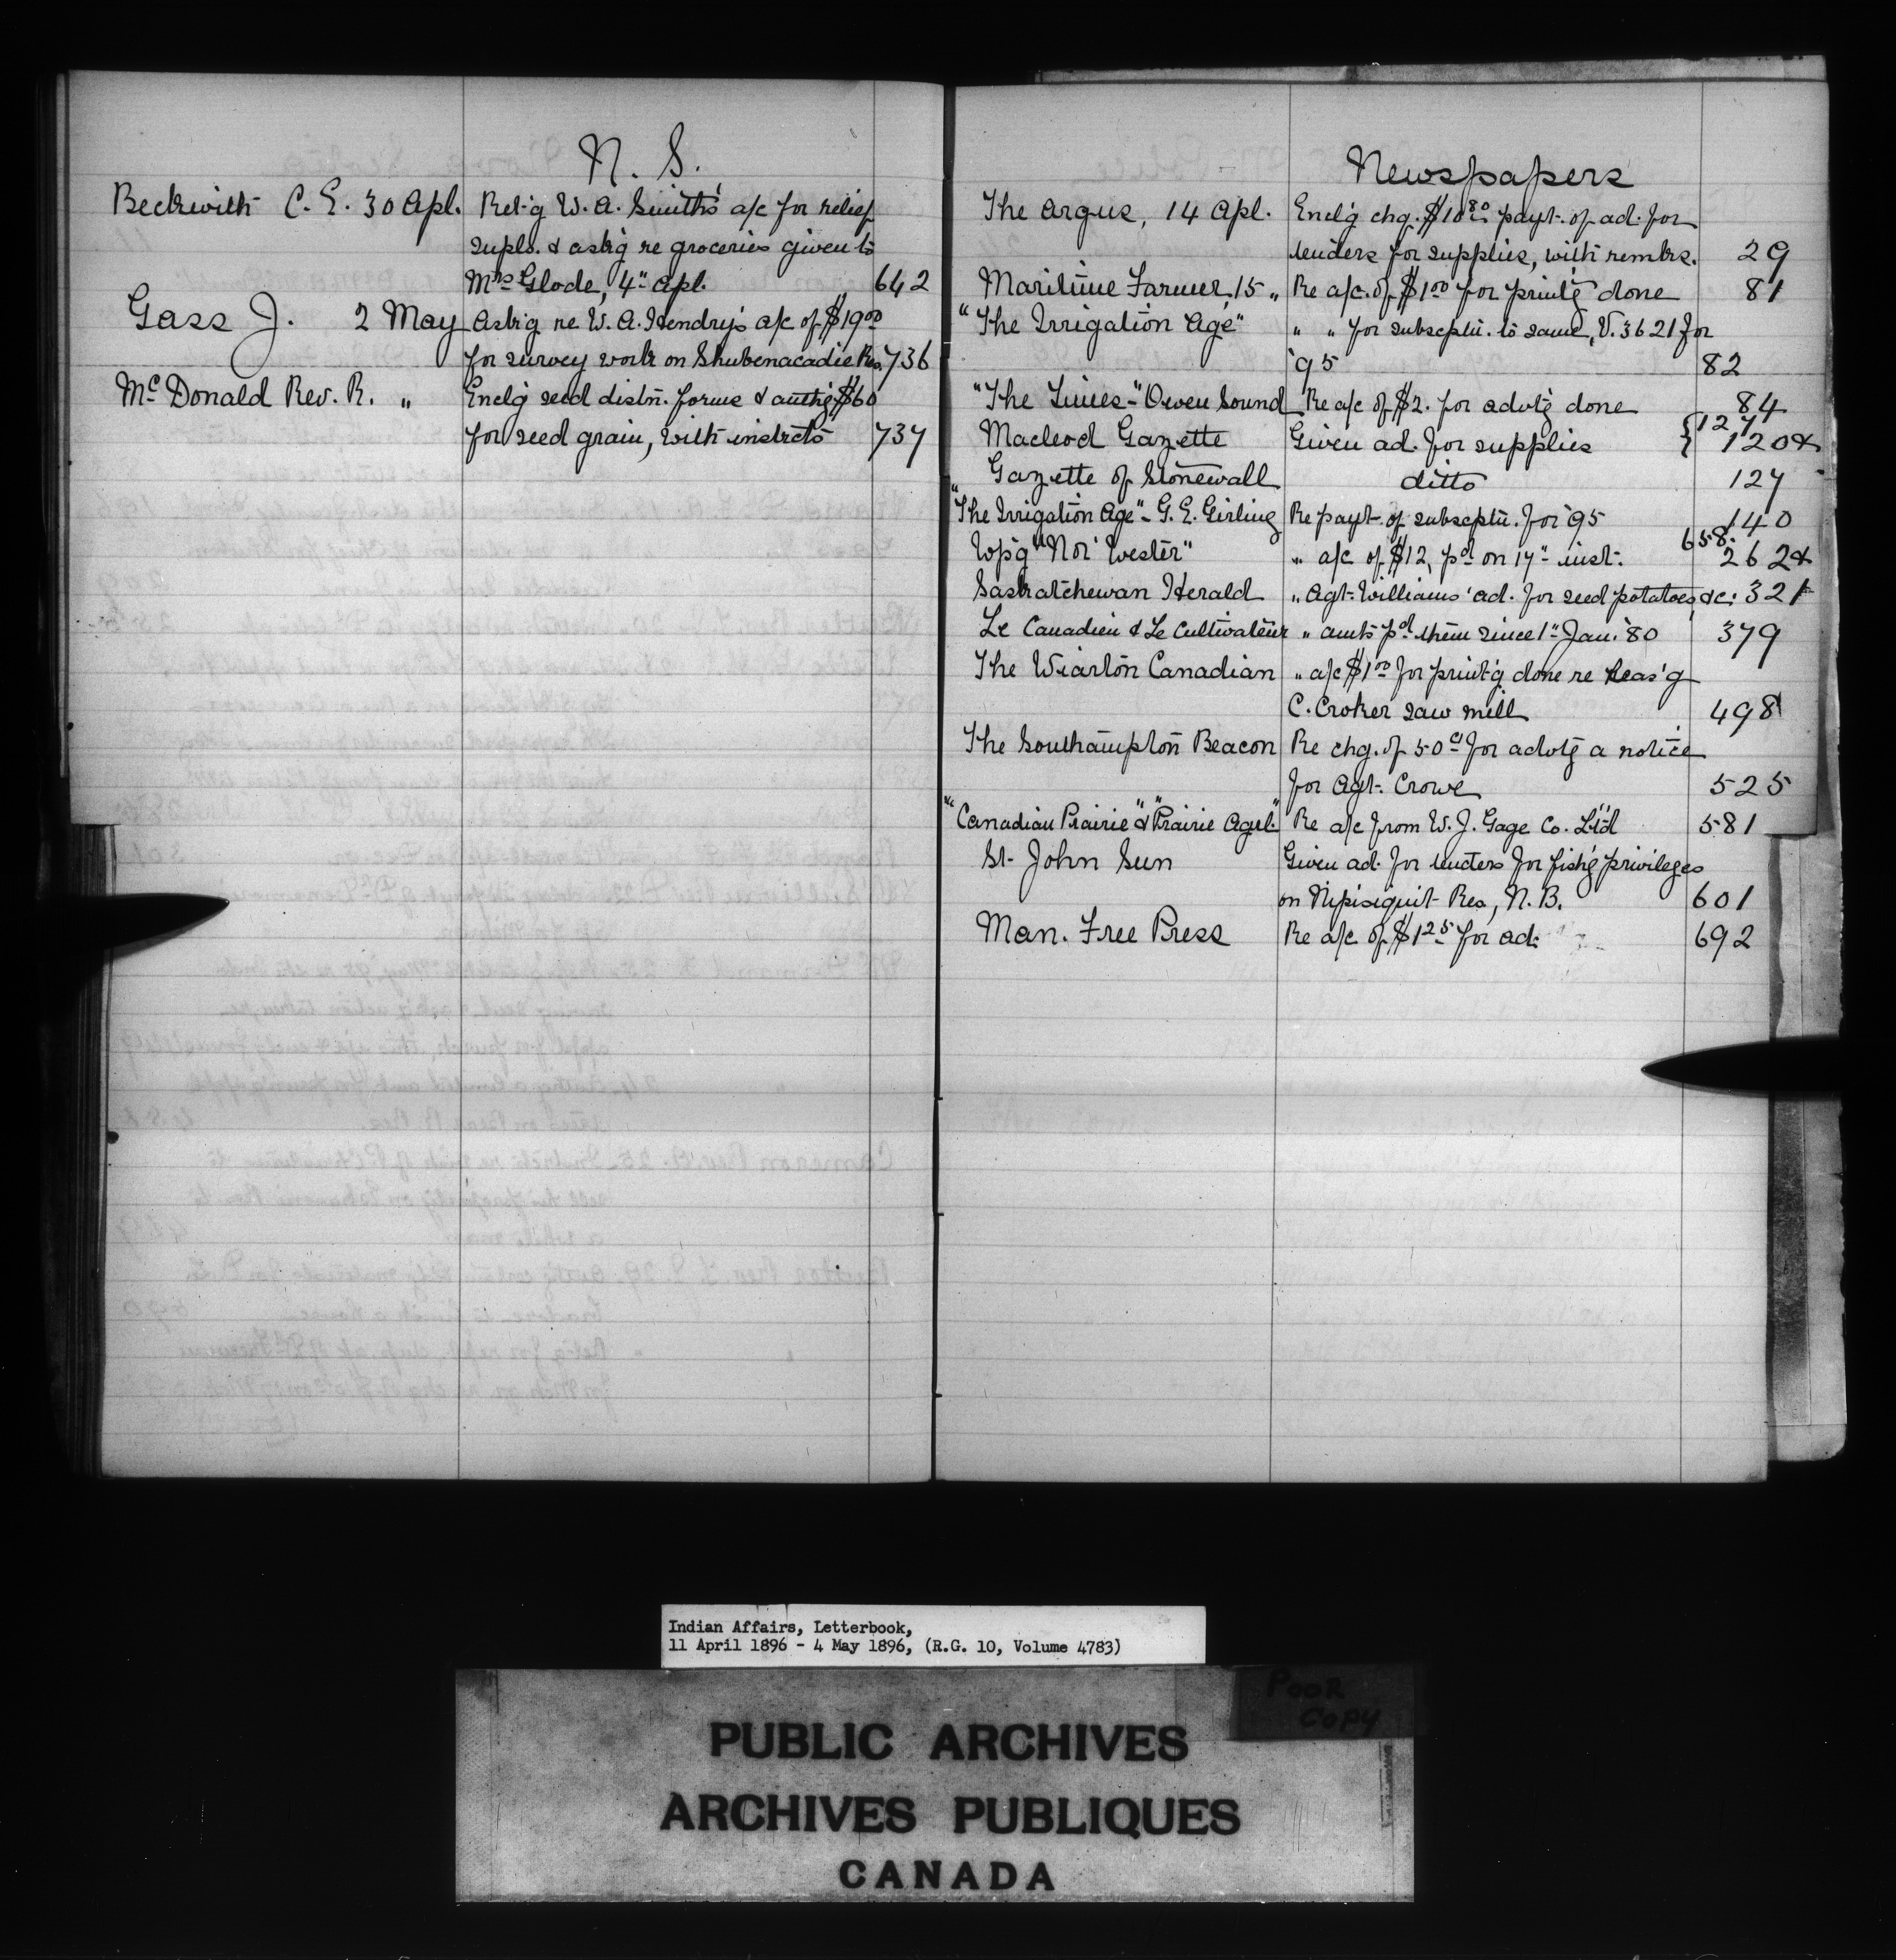 N. S.
Beckwith C. E. 30 Apl. Ret'g W. A. Smith's a/c for relief
supls. & ask'g re groceries given to
Mrs Glode, 4" Apl. 642
Gass J. 2 May Ask'g re W. A. Hendry's a/c of $19 00
for survey work on Shubenacadie Res. 736
Mc Donald Rev. R. " Encl'g seed distn. forms & auth'g $60
for seed grain, with instrcts 737
Newspapers
The Argus, 14 Apl. Encl'g chq. $10 80 payt. of ad. for
tenders for supplies, with remks. 29
Maritime Farmer, 15 " Re a/c. of $1 00 for print'g done 81
"The Irrigation Age" " " for subscptn. to same, V. 3621 for
'95 82
"The Times" - Owen Sound Re a/c of $2. for advt'g done 84
Macleod Gazette Given ad. for supplies { 127 120 &
Gazette of Stonewall ditto 127
"The Irrigation Age" - G. E. Girling Re payt. of subscptn. for '95 140
Wp'g "Nor' Wester" " a/c of $12, pd on 17" inst. 658. 262 &
Saskatchewan Herald " Agt. Williams' ad. for seed potatoes, &c. 321
Le Canadien & Le Cultivateur " amts pd them since 1" Jan. '80 379
The Wiarton Canadian " a/c $1 00 for print'g done re leas'g
C. Croker saw mill 498
The Southampton Beacon Re chg. of 50 c for advt'g a notice
for Agt. Crowe 525
"Canadian Prairie" & "Prairie Agrl." Re a/c from W. J. Gage Co. Lt'd 581
St. John Sun Given ad. for tenders for fish'g privileges
on Nipisiquit Res, N. B. 601
Man. Free Press Re a/c of $1 25 for ad. 692
Indian Affairs, Letterbook,
11 April 1896 - 4 May 1896, (R.G. 10, Volume 4783)
POOR
COPY
PUBLIC ARCHIVES
ARCHIVES PUBLIQUES
CANADA